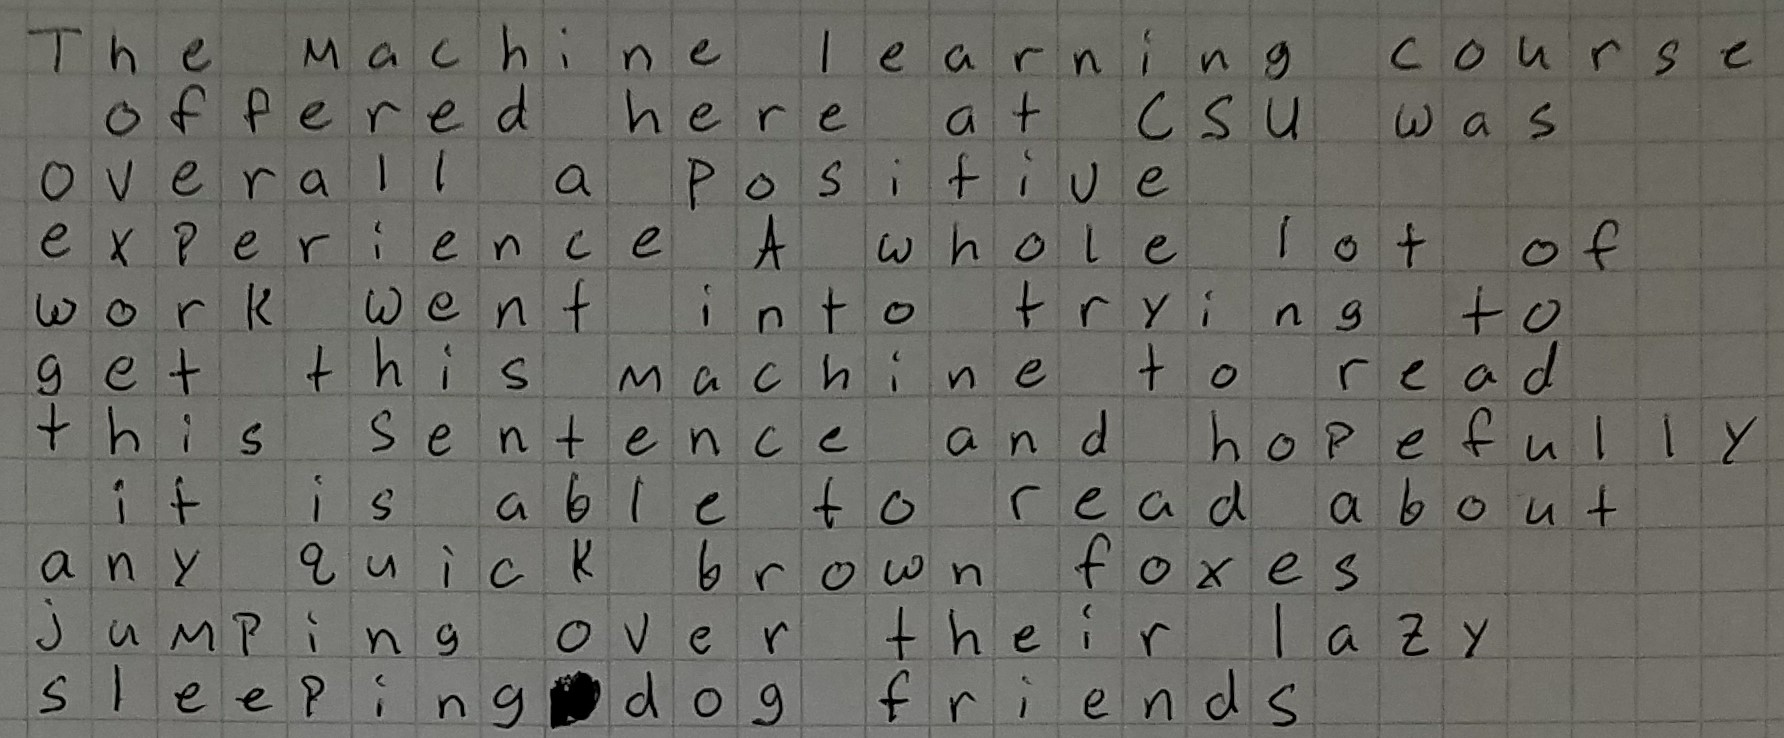 The machine learning course
offered here at CSU was
overall a positive
experience A whole lot of
work went into trying to
get this machine to read
this sentence and hopefully
it is able to read about
any quick brown foxes
jumping over their lazy
sleeping dog friends